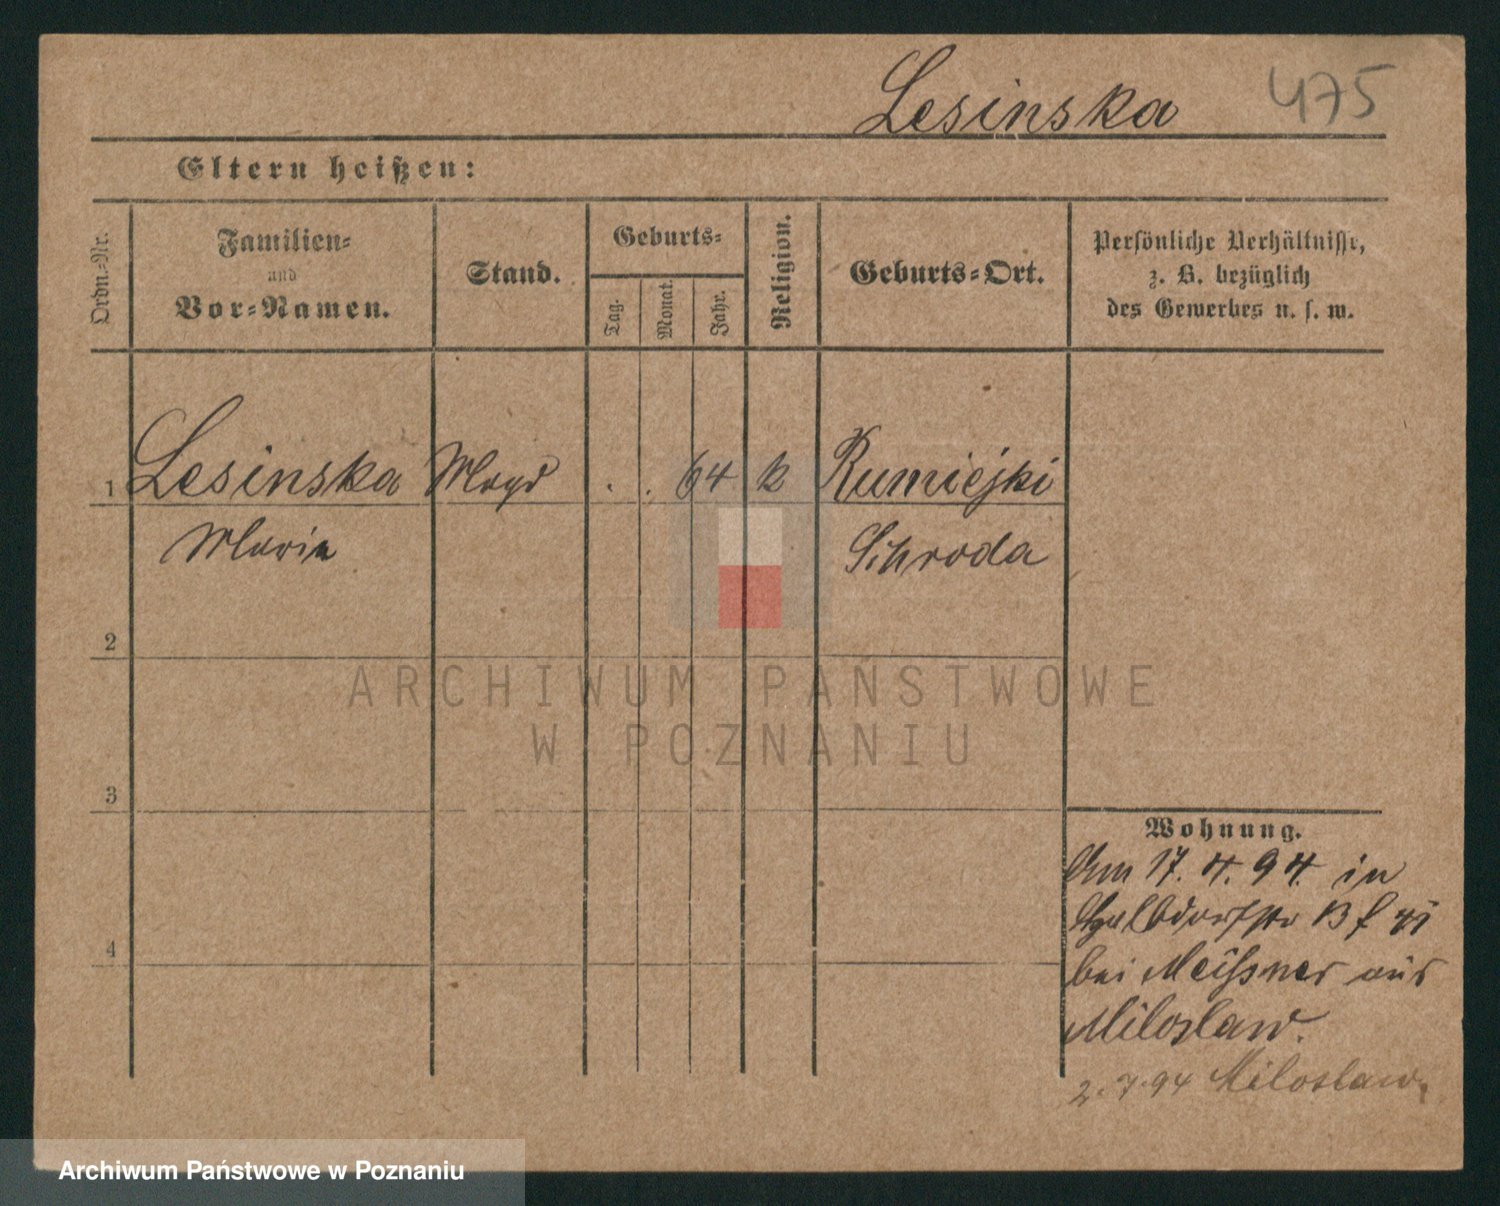 Lesinska 475
Eltern heißen:
Ordn.=Nr.
Familien=
und
Vor=Namen.
Stand.
Geburts=
Tag.
Monat.
Jahr.
Religion.
Geburts=Ort.
Persönliche Verhältnisse,
z. B. bezüglich
des Gewerbes u. s. w.
1 Lesinska Magd . . 64 k Rumiejki
Maria Schroda
2
3
4
Wohnung.
Am 17. 4. 94. in
bei Meißner aus
Miloslaw.
2.7.94 Miloslaw.
ARCHIWUM PAŃSTWOWE
W POZNANIU
Archiwum Państwowe w Poznaniu